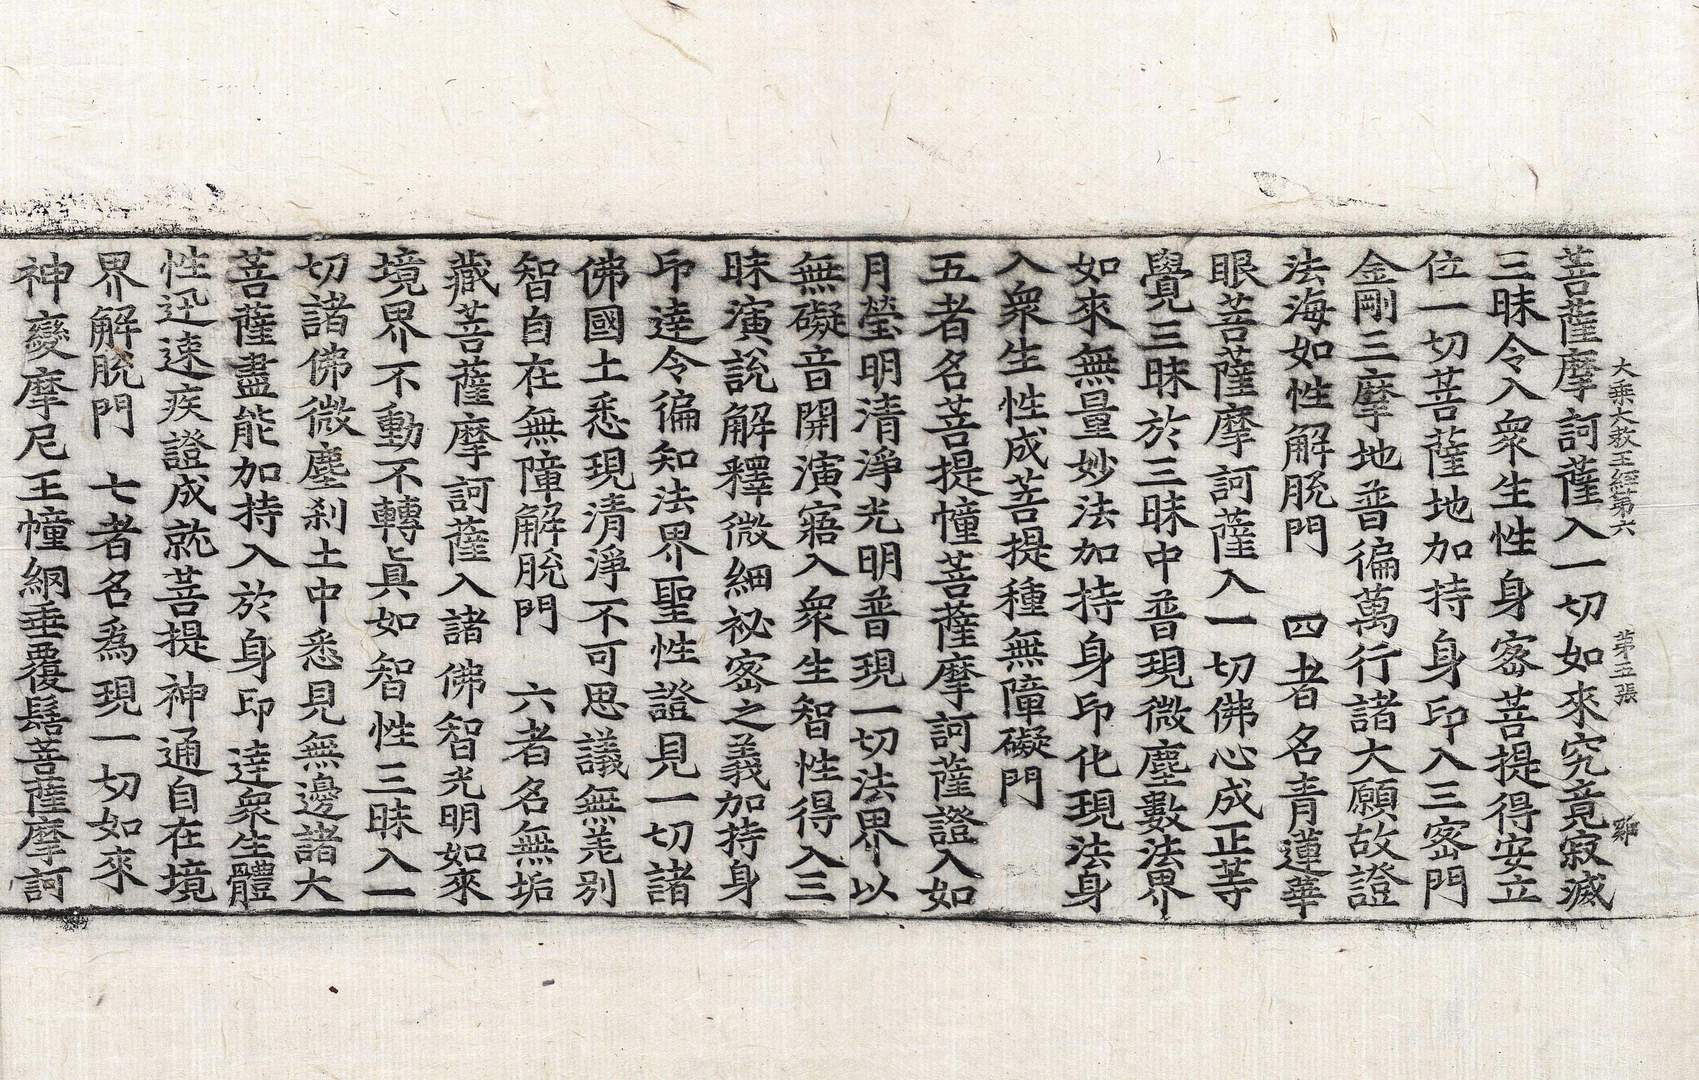 大乘大教王經第六 第五張
菩薩摩訶薩入一切如來究竟寂滅
三昧令入衆生性身密菩提得安立
位一切菩薩地加持身印入三密門
金剛三摩地普徧萬行諸大願故證
法海如性解脫門 四者名青蓮華
眼菩薩摩訶薩入一切佛心成正等
覺三昧於三昧中普現微塵數法界
如來無量妙法加持身印化現法身
入衆生性成菩提種無障礙門
五者名菩提幢菩薩摩訶薩證入如
月瑩明清淨光明普現一切法界以
無礙音開演寤入衆生智性得入三
昧演說解釋微細祕密之義加持身
印達令徧知法界聖性證見一切諸
佛國土悉現清淨不可思議無差別
智自在無障解脫門 六者名無垢
藏菩薩摩訶薩入諸佛智光明如來
境界不動不轉眞如智性三昧入一
切諸佛微塵剎土中悉見無邊諸大
菩薩盡能加持入於身印達衆生體
性迅速疾證成就菩提神通自在境
界解脫門 七者名爲現一切如來
神變摩尼王幢網垂覆髻菩薩摩訶